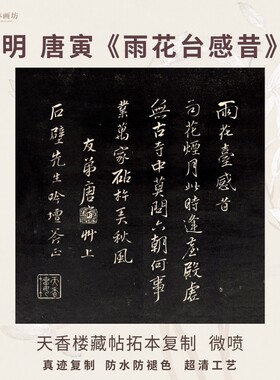 画坊
明 唐寅《雨花台感昔》
雨花臺感昔
花煙月此時逢臺殿虛
無古寺中莫問六朝何事
業萬家砧杵美秋風
友弟唐寅艸上
石壁先生吟壇正
天香楼藏帖拓本复制 微喷
真迹复制 防水防褪色 超清工艺